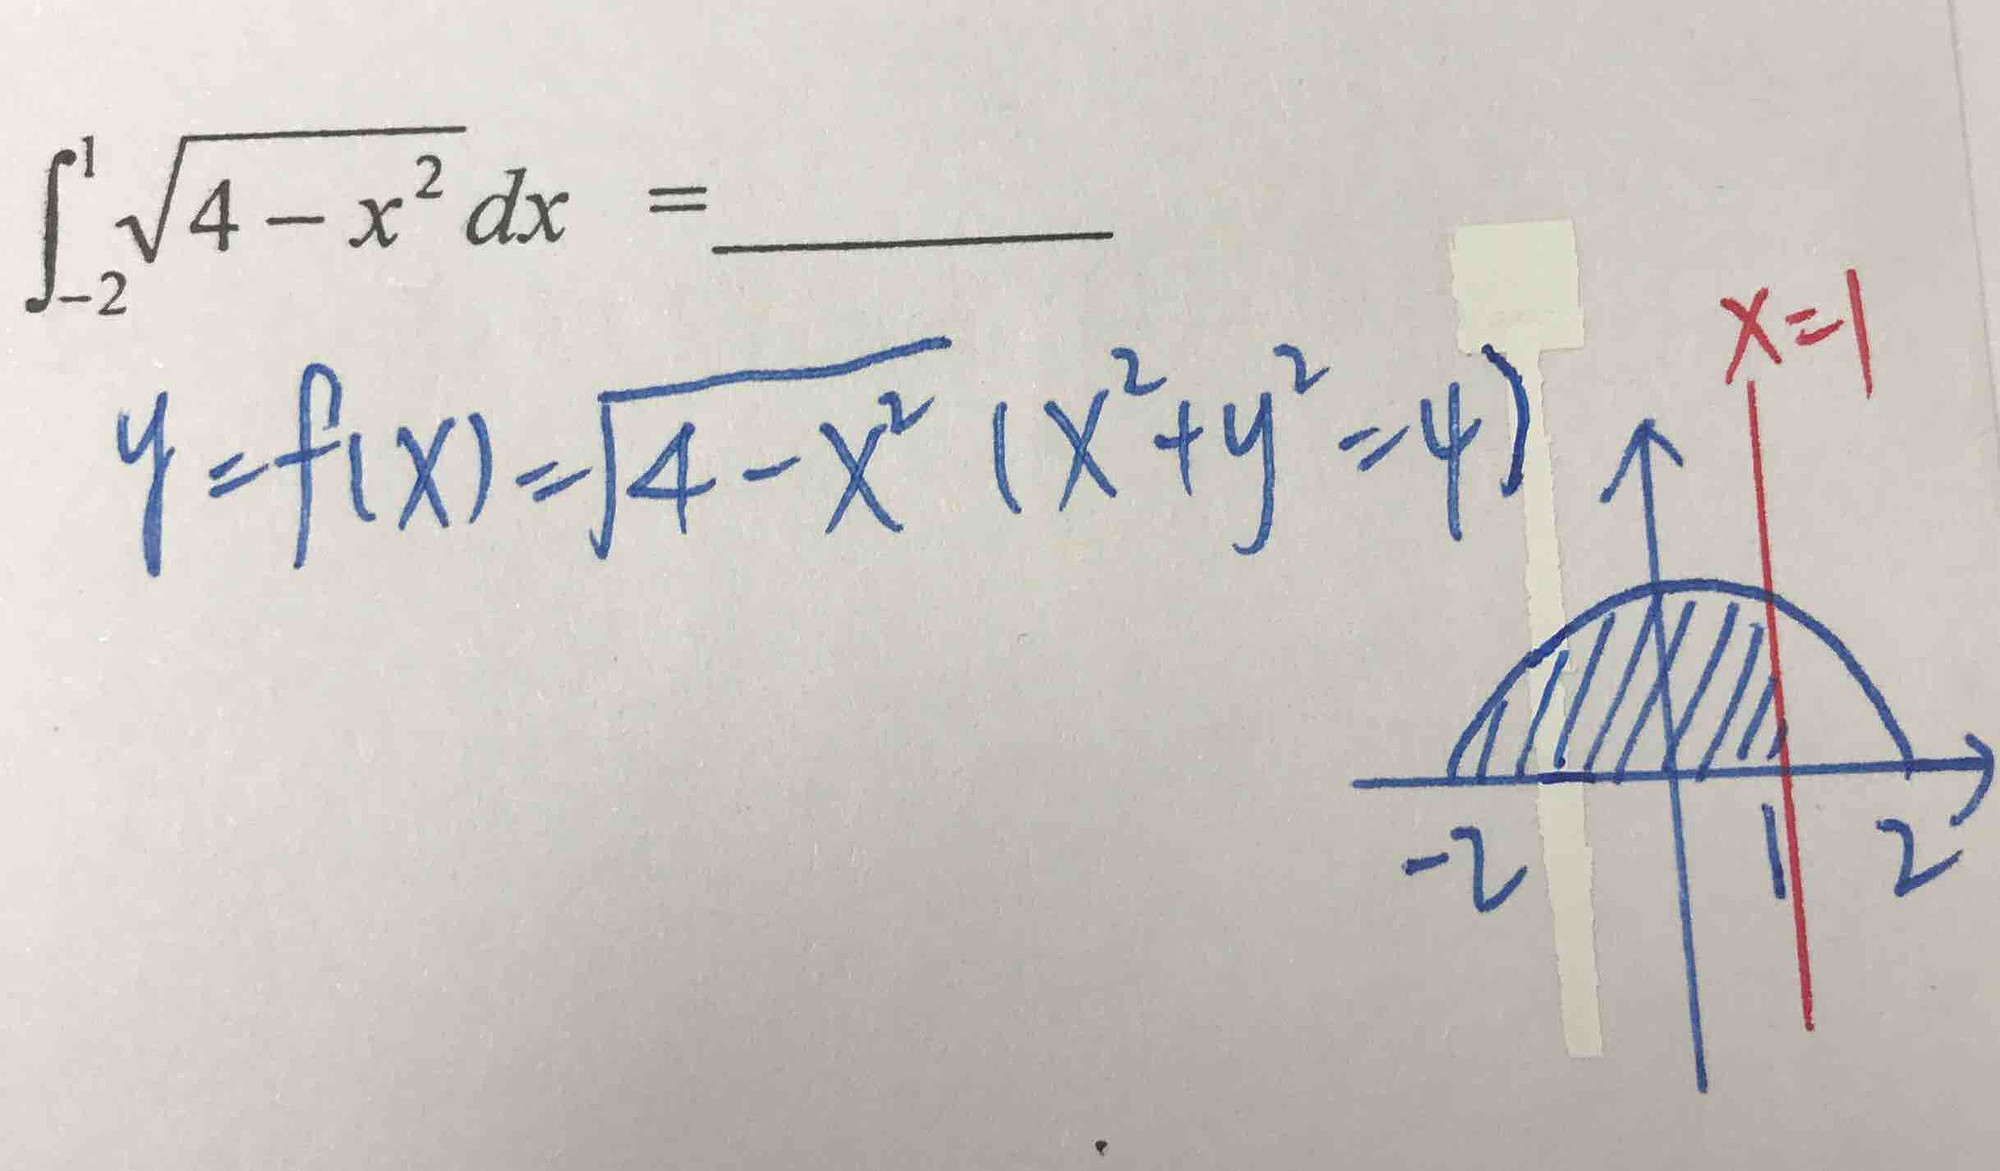 ∫₋₂¹ √(4 − x²) dx = ________
x=1
y=f(x)=√(4-x²) (x²+y²=4)
-2 1 2